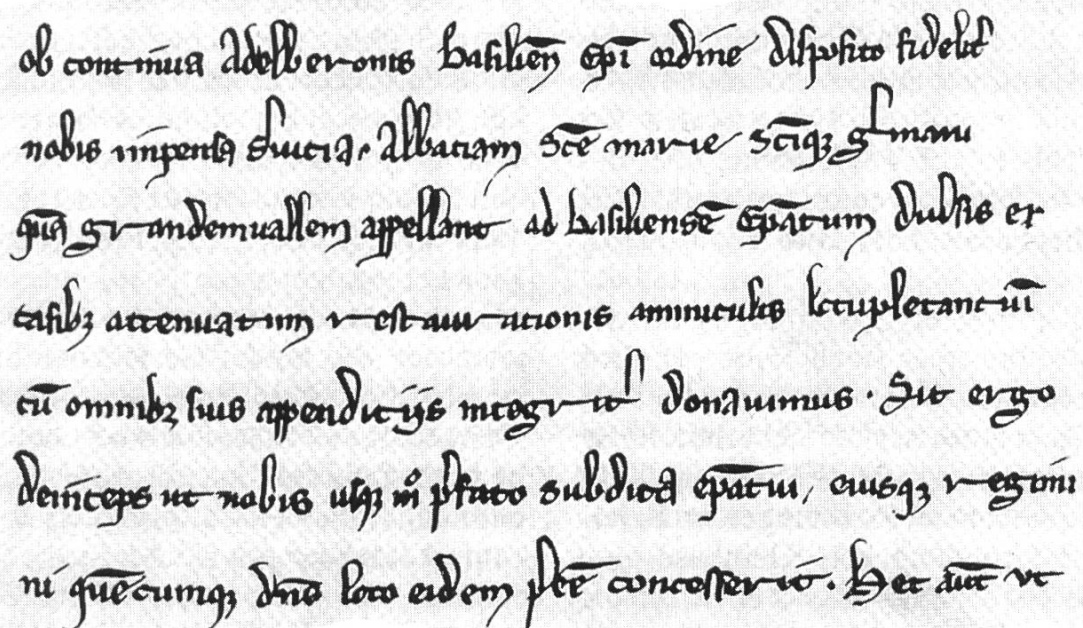 ob continua Adelberonis basilien̄ ep̄i ordine disposito fidelit'
nobis impensa s'uicia, Abbaciam sc̄e marie sc̄iqꝫ g'mani
quā grandemuallem appellant ad basiliensē ep̄atum diu'sis
casibꝫ attenuatum restaurationis amminiculis
cū omnibꝫ suis appenditijs integrit' donauimus. Sit ergo
deinceps ut nobis usqꝫ p'fato subdita ep̄atui, eiusqꝫ regimi
ni quēcumqꝫ dn̄s loco eidem p'eē concesserit. Hec aūt ut